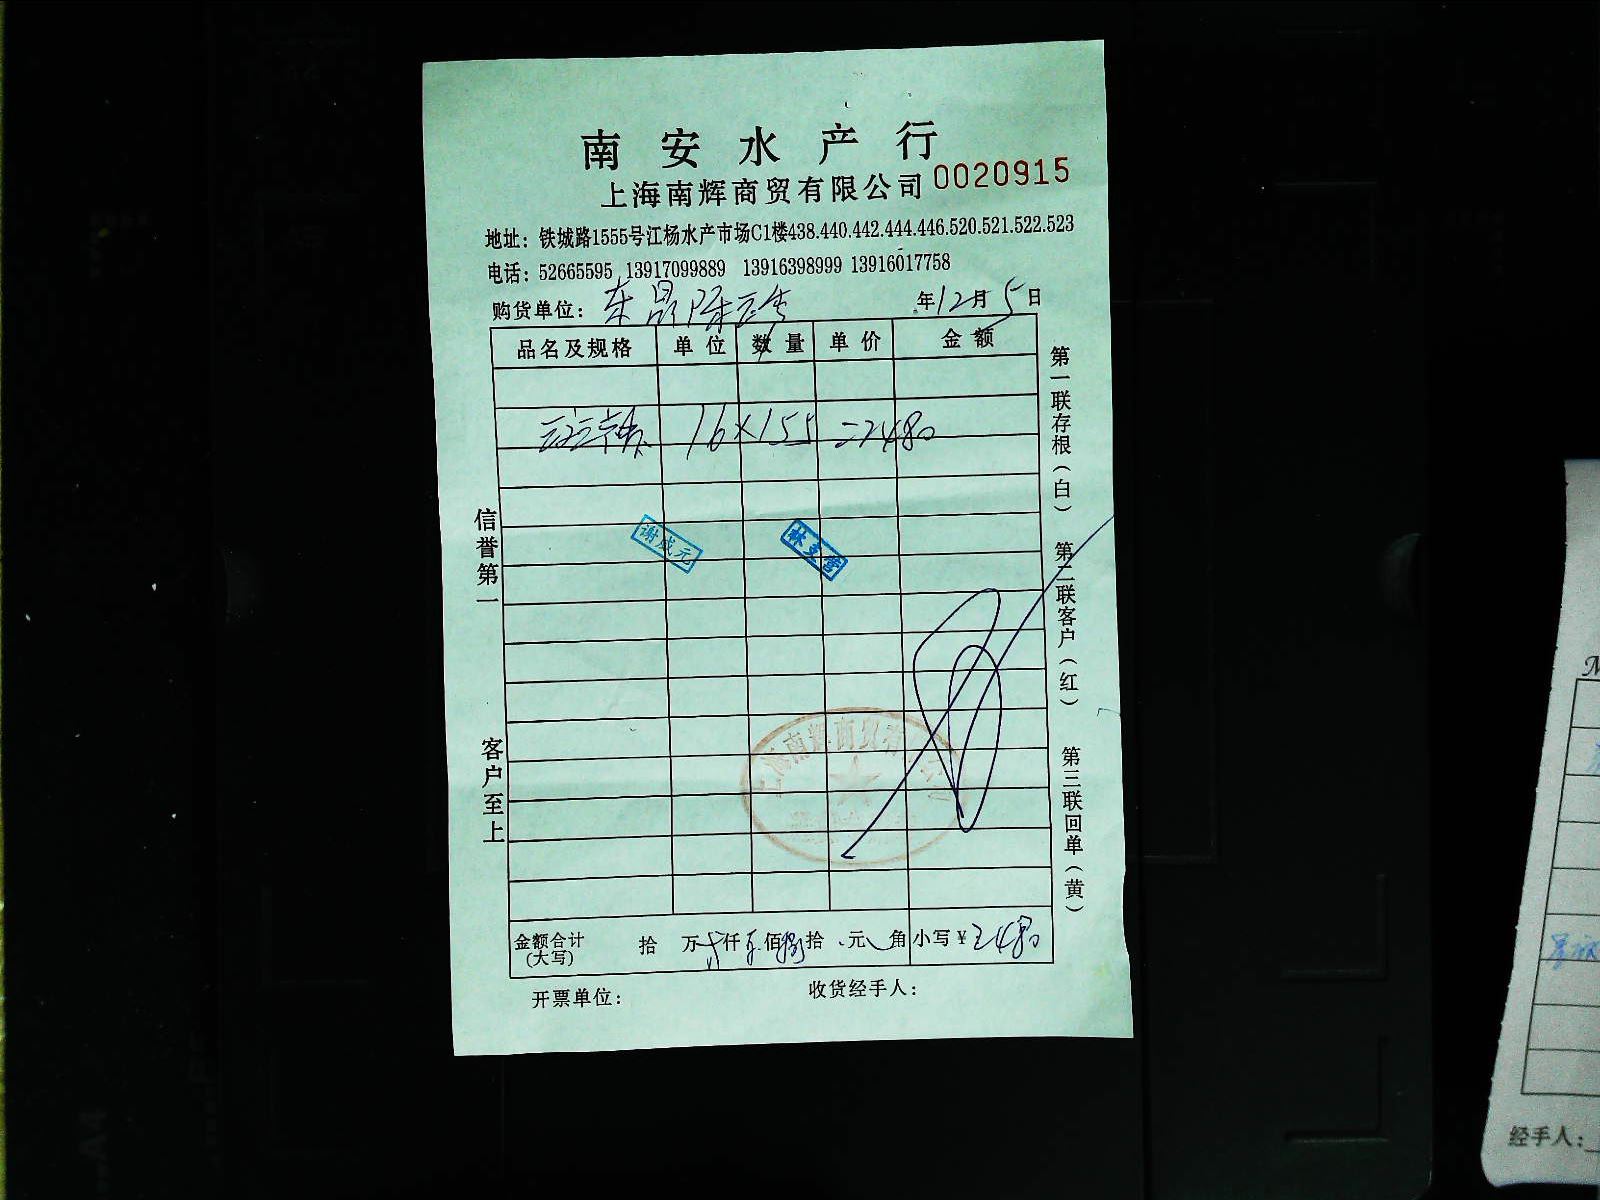 南安水产行
上海南辉商贸有限公司 0020915
地址：铁城路1555号江杨水产市场C1楼438.440.442.444.446.520.521.522.523
电话：52665595 13917099889 13916398999 13916017758
购货单位： 年12月5日
品名及规格 单位 数量 单价 金额
16×155=2480
谢成元
信誉第一
客户至上
第一联存根（白） 第二联客户（红） 第三联回单（黄）
上海南辉商贸有限公司
金额合计（大写） 拾 万 仟 佰 拾 元 角 小写￥2480
开票单位： 收货经手人：
经手人：